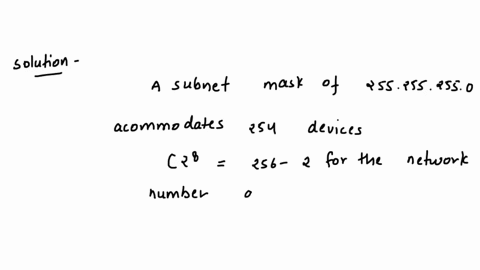 solution -
A subnet mask of 255.255.255.0
acommodates 254 devices
(2⁸ = 256 - 2 for the network
number o